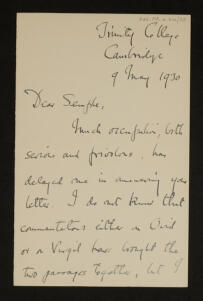 Trinity College
Cambridge
9 May 1930
Dear Semple,
Much occupation, both
serious and frivolous, has
delayed me in answering your
letter. I do not know that
commentators either on Ovid
or on Virgil have brought the
two passages together, but I